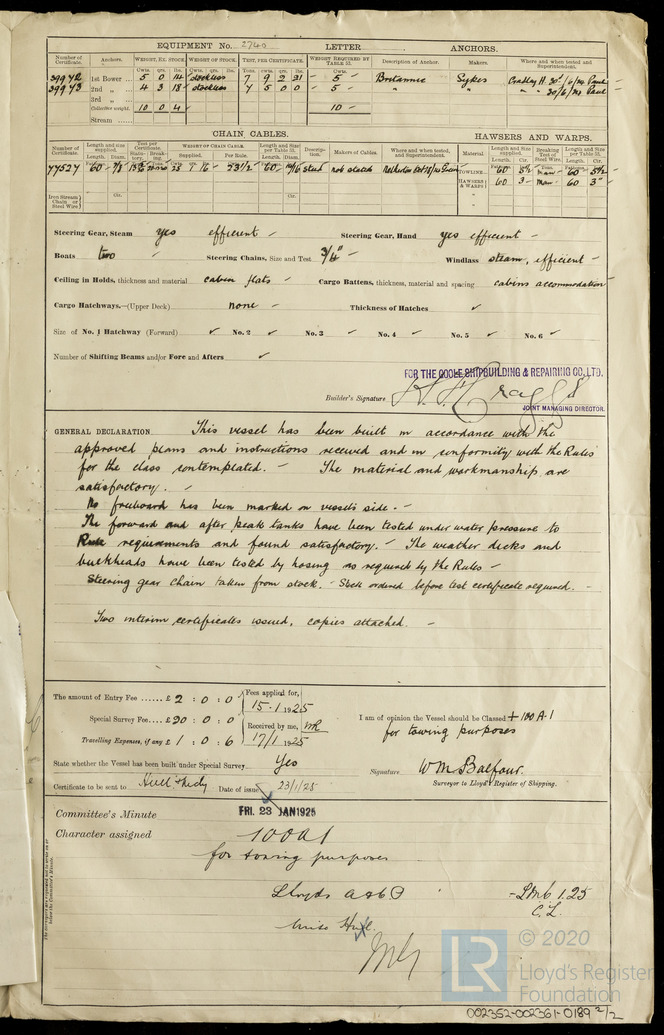 EQUIPMENT No. 2740 LETTER ANCHORS.
Number of Certificate. Anchors. WEIGHT, EX. STOCK. WEIGHT OF STOCK. TEST, PER CERTIFICATE. WEIGHT REQUIRED BY TABLE 31. Description of Anchor. Makers. Where and when tested and Superintendent.
Cwts. qrs. lbs. Cwts. qrs. lbs. Tons. cwts. qrs. lbs. Cwts.
39942 1st Bower 5 0 14 stockless 7 9 2 21 5 Britannic Sykes Cradley H. 30/6/24 Paul
39943 2nd „ 4 3 18 stockless 7 5 0 0 5 „ „ 30/6/24 Paul
3rd „
Collective weight. 10 0 4 10
Stream
CHAIN CABLES. HAWSERS AND WARPS.
Number of Certificate. Length and size supplied. Test per Certificate. WEIGHT OF CHAIN CABLE. Length and size per Table 31. Description. Makers of Cables. Where and when tested, and Superintendent. Material Length and Size supplied. Breaking Test of Steel Wire. Length and Size per Table 31.
Length. Diam. Statutory. Breaking. Supplied. Per Rule. Length. Diam. Length. Cir. Length. Cir.
77527 60 7/8 73 1/2 60 stud not stated Netherton TOWLINE 60 5 1/2 man 60 5 1/2
HAWSERS & WARPS 60 3 man 60 3"
Iron Stream Chain or Steel Wire Cir. Cir.
Steering Gear, Steam yes efficient Steering Gear, Hand yes efficient
Boats two Steering Chains, Size and Test 3/4" Windlass steam, efficient
Ceiling in Holds, thickness and material cabin flats Cargo Battens, thickness, material and spacing cabins accommodation
Cargo Hatchways.—(Upper Deck) none Thickness of Hatches ✓
Size of No. 1 Hatchway (Forward) ✓ No. 2 ✓ No. 3 ✓ No. 4 ✓ No. 5 ✓ No. 6 ✓
Number of Shifting Beams and/or Fore and Afters ✓
FOR THE GOOLE SHIPBUILDING & REPAIRING CO., LTD.
Builder's Signature
JOINT MANAGING DIRECTOR.
GENERAL DECLARATION This vessel has been built in accordance with the
approved plans and instructions received and in conformity with the Rules
for the class contemplated. — The material and workmanship are
satisfactory. —
No freeboard has been marked on vessel's side. —
The forward and after peak tanks have been tested under water pressure to
Rule requirements and found satisfactory. — The weather decks and
bulkheads have been tested by hosing as required by the Rules —
Steering gear chain taken from stock. Stock ordered before test certificate required. —
Two interim certificates issued, copies attached. —
The amount of Entry Fee ...... £ 2 : 0 : 0 Fees applied for,
15.1.1925
Special Survey Fee .... £ 20 : 0 : 0 I am of opinion the Vessel should be Classed + 100 A.1
Received by me, for towing purposes
Travelling Expenses, if any £ 1 : 0 : 6 17/1 1925
State whether the Vessel has been built under Special Survey Yes Signature W M Balfour.
Surveyor to Lloyd's Register of Shipping.
Certificate to be sent to Date of issue 23/1/25
Committee's Minute FRI. 23 JAN 1925
Character assigned 100A1
for towing purposes
Lloyds A & C P - LMC 1.25
C.L.
© 2020
LR
Lloyd's Register
Foundation
002352-002361-0189 2/2